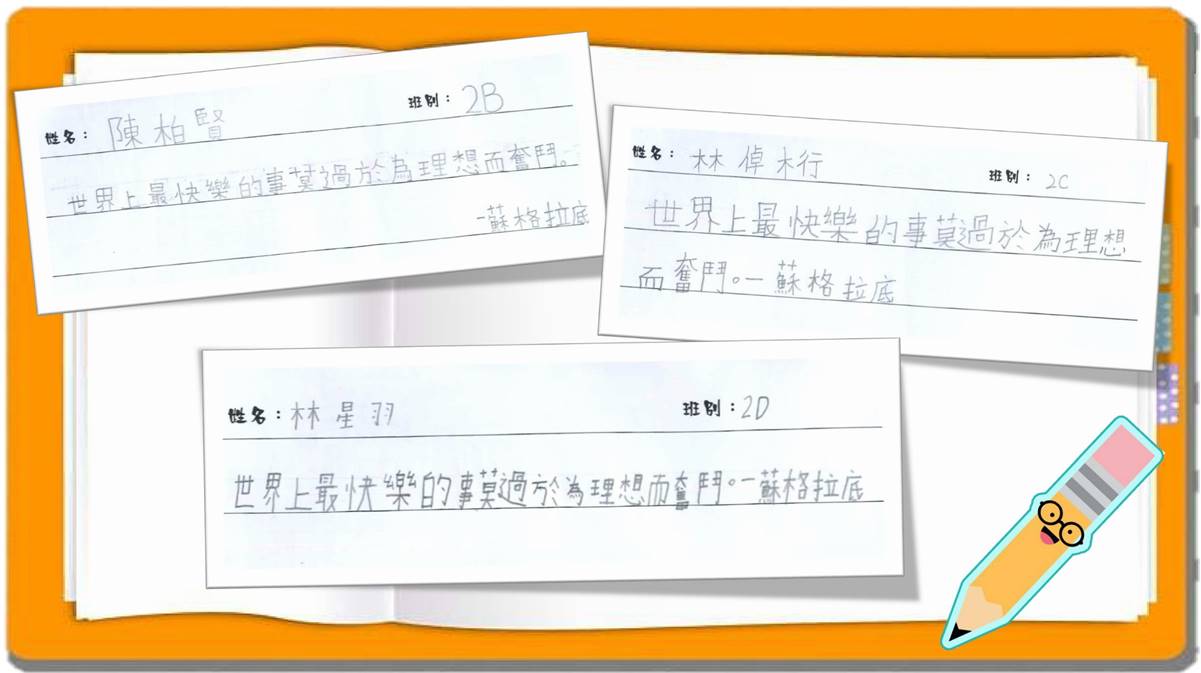 姓名： 陳柏賢 班別： 2B
世界上最快樂的事莫過於為理想而奮鬥。
-蘇格拉底
姓名： 林倬桁 班別： 2C
世界上最快樂的事莫過於為理想
而奮鬥。-蘇格拉底
姓名：林星羽 班別：2D
世界上最快樂的事莫過於為理想而奮鬥。-蘇格拉底